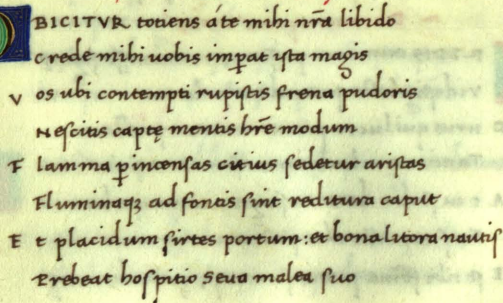 OBICITVR totiens a te mihi nr̄a libido
Crede mihi uobis imp̲at ista magis
Vos ubi contempti rupistis frena pudoris
Nescitis captę mentis hr̄e modum
Flamma p̲ incensas citius sedetur aristas
Fluminaqꝫ ad fontis sint reditura caput
Et placidum sirtes portum: et bona litora nautis
Prebeat hospitio Seua malea suo